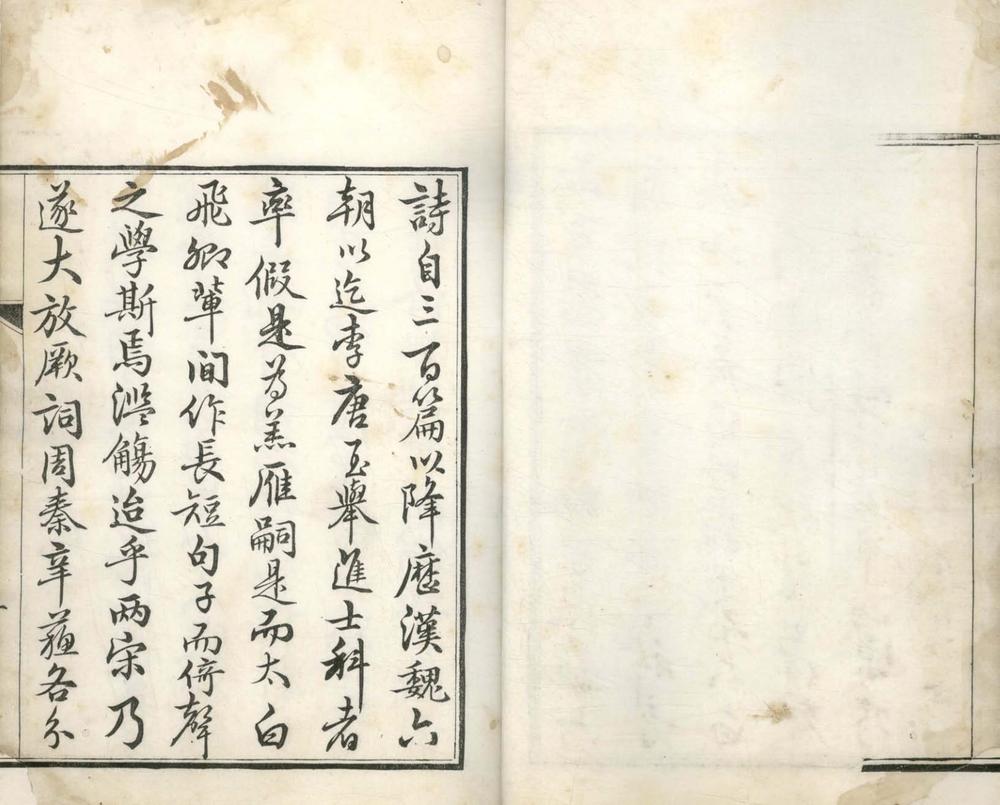 詩自三百篇以降歷漢魏六
朝以迄李唐至舉進士科者
率假是為羔雁嗣是而太白
飛卿輩間作長短句子而倚聲
之學斯焉濫觴迨乎两宋乃
遂大放厥詞周秦辛蘓各分